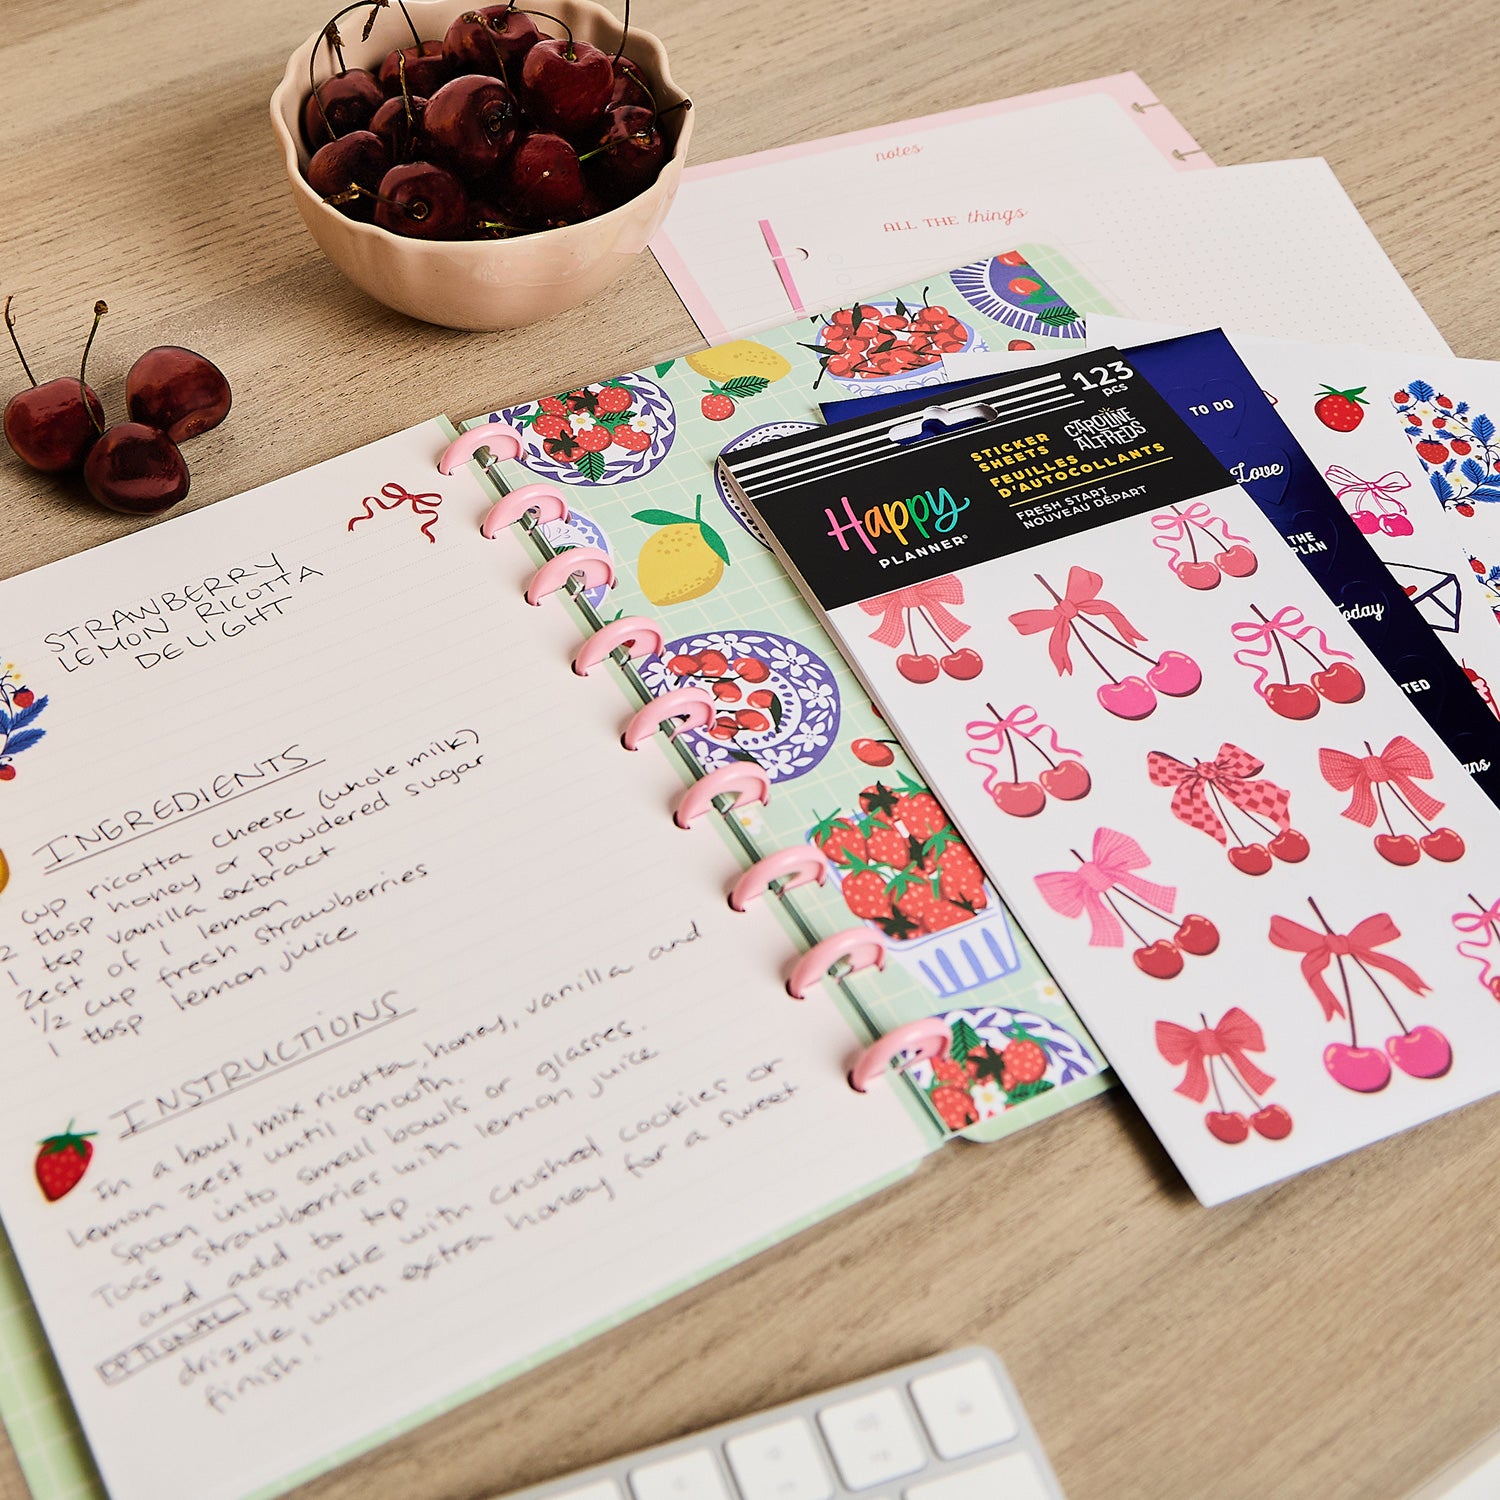 notes
ALL THE things
123
pcs
CAROLINE
ALFREDS
STICKER
SHEETS
FEUILLES
D'AUTOCOLLANTS
FRESH START
NOUVEAU DÉPART
Happy
PLANNER®
TO DO
Love
THE
PLAN
Today
STRAWBERRY
LEMON RICOTTA
DELIGHT
INGREDIENTS
cup ricotta cheese (whole milk)
2 tbsp honey or powdered sugar
1 tsp vanilla extract
Zest of 1 lemon
1/2 cup fresh strawberries
1 tbsp lemon juice
INSTRUCTIONS
In a bowl, mix ricotta, honey, vanilla and
lemon zest until smooth.
Spoon into small bowls or glasses.
Toss strawberries with lemon juice
and add to top
OPTIONAL Sprinkle with crushed cookies or
drizzle, with extra honey for a sweet
finish.